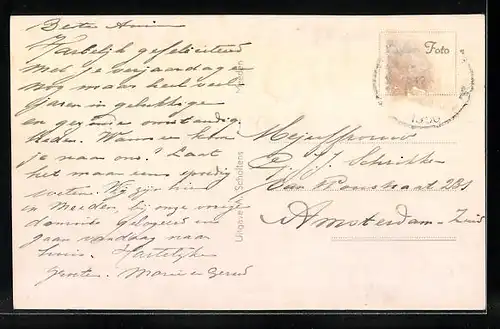 Beste Annie
Hartelijk gefeliciteerd
met je verjaardag en
nog maar heel veel
jaren in gelukkige
en gezonde omstandig
heden. Wanneer kom
je naar ons? Laat
het maar eens spoedig
weten. Wij zijn hier
in Meeden, bij onze vorige
gelogeerd en
gaan vandaag naar
huis. Hartelijke
groeten. Marie en Gerard
Uitgave Scholtens Meeden
Foto
Mejuffrouw
J. J. Schrikker
Van 281
Amsterdam-Zuid